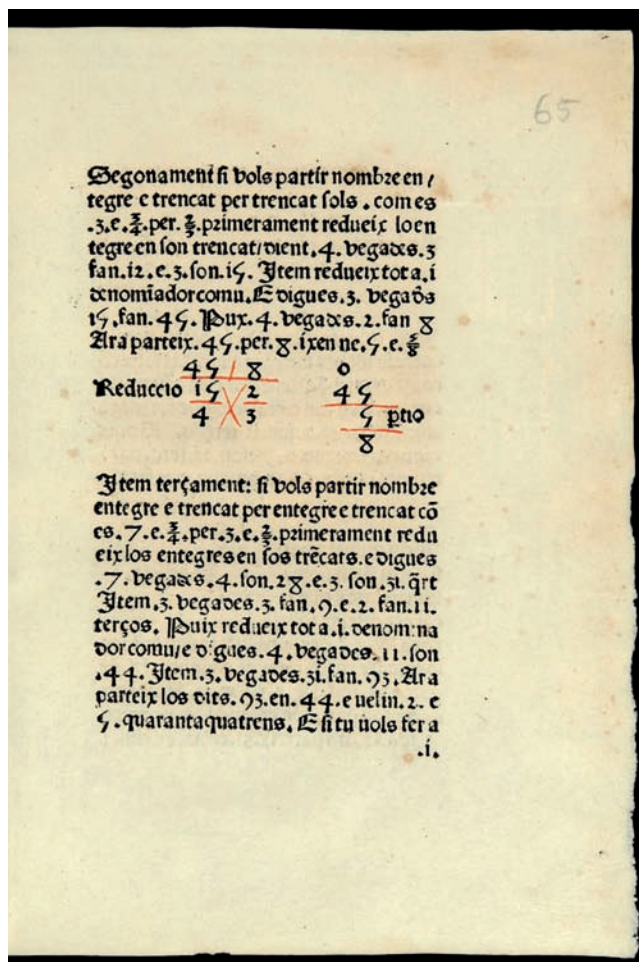 65
Segonament si vols partir nombre en/
tegre e trencat per trencat sols . com es
.3.e.3/4.per.2/3.primerament redueix lo en
tegre en son trencat/dient.4. vegades.3
fan.12.e.3.son.15. Item redueix tot a.i
denomīador comu. E digues.3. vegad̄s
15.fan.45. Pux.4.vegades.2.fan 8
Ara parteix.45.per.8.ixen ne.5.e.5/8
45 / 8 0
Reduccio 15 2 45
4 3 5 ꝑtio
8
Item terçament: si vols partir nombre
entegre e trencat per entegre e trencat cō
es.7.e.3/4.per.3.e.2/3.primerament redu
eix los entegres en sos trēcats.e digues
.7.vegades.4.son.28.e.3.son.31.q̄rt
Item.3.vegades.3.fan.9.e.2.fan.11.
terços. Puix redueix tot a.i.denomina
dor comu/e digues.4.vegades.11.son
.44.Item.3.vegades.31.fan.93.Ara
parteix los dits.93.en.44.e uelin.2.e
5.quarantaquatrens. E si tu uols fer a
.i.